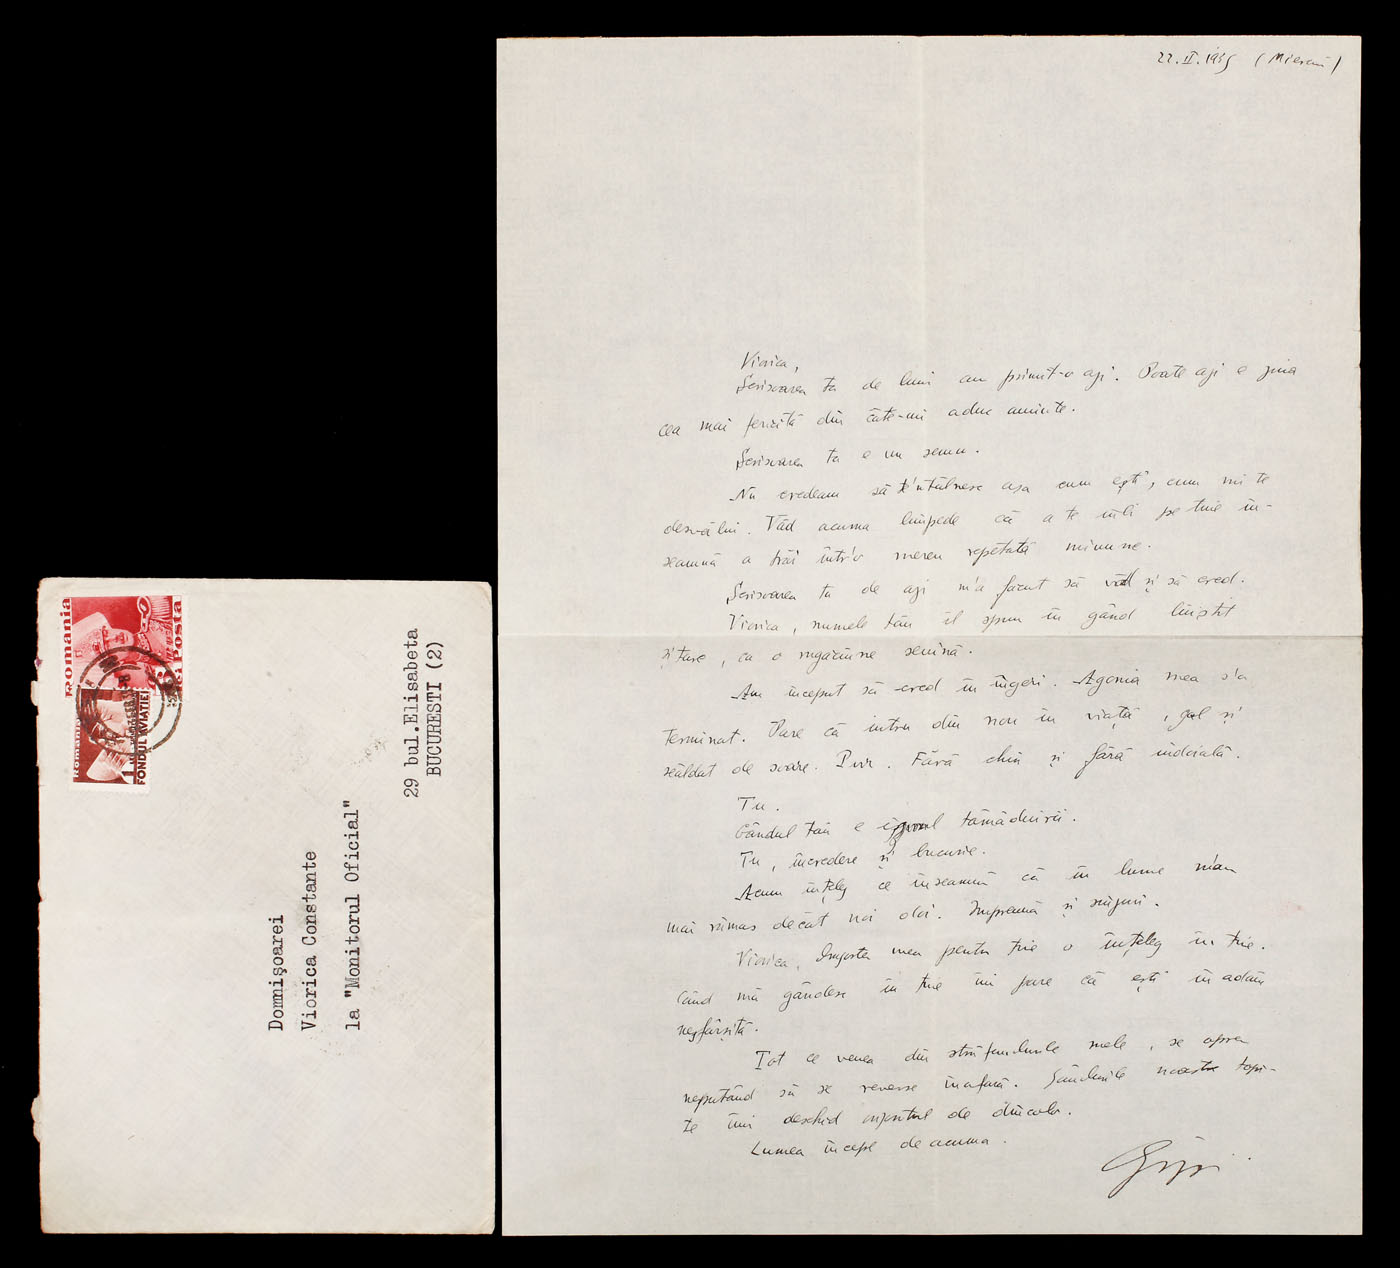 22.II.1935 (Miercuri)
Viorica,
Scrisoarea ta de luni am primit-o azi. Poate azi e ziua
cea mai fericită din câte-mi aduc aminte.
Scrisoarea ta e un semn.
Nu credeam să te'ntâlnesc așa cum ești, cum mi te
desvălui. Văd acuma limpede că a te iubi pe tine în-
seamnă a trăi într'o mereu repetată minune.
Scrisoarea ta de azi m'a făcut să văd și să cred.
Viorica, numele tău îl spun în gând liniștit
și tare, ca o rugăciune senină.
Am început să cred în îngeri. Agonia mea s'a
terminat. Pare că intru din nou în viață, gol și
scăldat de soare. Pur. Fără chin și fără îndoială.
Tu.
Gândul tău e izvorul tămăduirii.
Tu, încredere și bucurie.
Acum înțeleg ce înseamnă că în lume n'am
mai rămas decât noi doi. Împreună și singuri.
Viorica, dragostea mea pentru tine o înțeleg în tine.
Când mă gândesc la tine îmi pare că ești în adânc
nesfârșită.
Tot ce venea din străfundurile mele, se oprea
neputând să se reverse înafară. Gândurile noastre topi-
te îmi deschid orizontul de dincolo.
Lumea începe de acuma.
România
Posta
România
FONDUL AVIAȚIEI
Domnișoarei
Viorica Constante
la "Monitorul Oficial"
29 bul.Elisabeta
BUCUREȘTI (2)